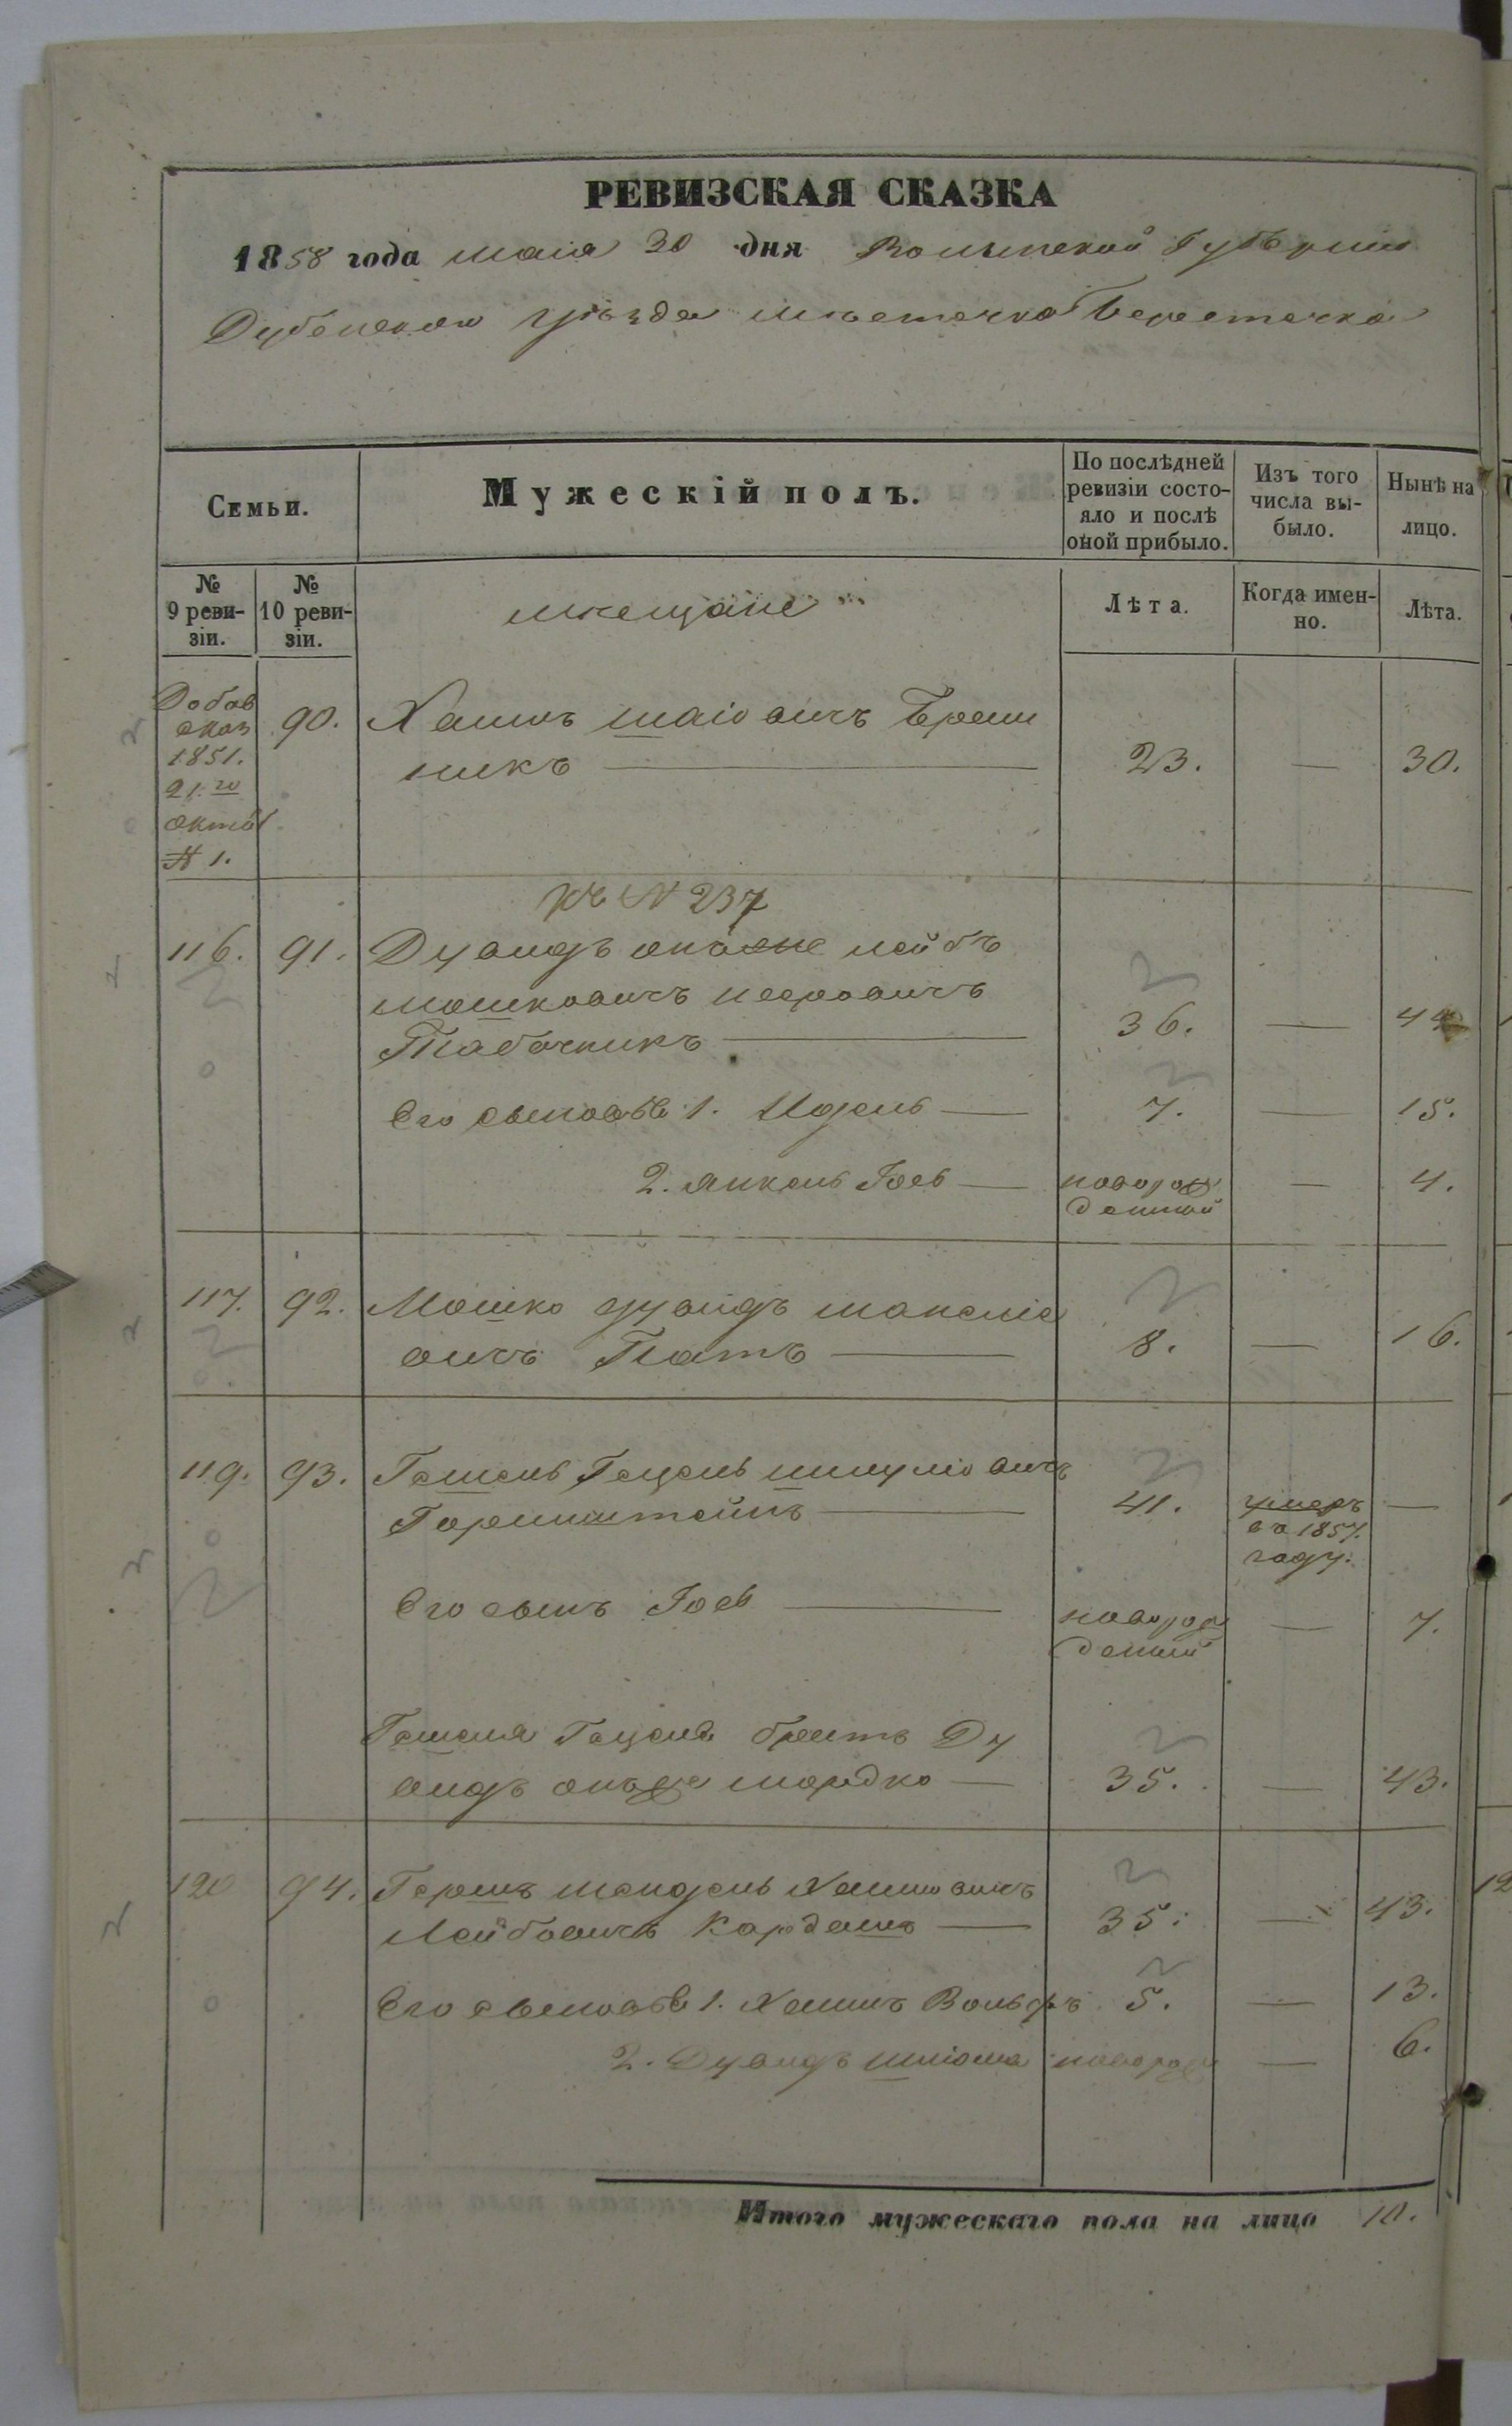 РЕВИЗСКАЯ СКАЗКА
1858 года мая 30 дня Волынской Губерніи
Дубенскаго уѣзда мѣстечка Берестечка
Семьи.
Мужескій полъ.
По послѣдней ревизіи состо-
яло и послѣ
оной прибыло.
Изъ того
числа вы-
было.
Нынѣ на
лицо.
№
9 реви-
зіи.
№
10 реви-
зіи.
мѣщане
Лѣта.
Когда имен-
но.
Лѣта.
Добав
сказ
1851.
21.го
октяб
№ 1.
90. Хаимъ Шаіовичъ
никъ — 23. — 30.
къ № 237
116. 91. Дувидъ Лейбъ
Мошковичъ
Табачникъ — 36. — 44
Его сыновья 1. Идель — 7. — 15.
2. Янкель Іось — новорож
денный — 4.
117. 92. Мошко Дувидъ
вичъ — 8. — 16.
119. 93. Гецель Шмулiовичъ
Горинштейнъ — 41. умеръ —
въ 1857.
году.
Его сынъ Іось — новорож
денный — 7.
Гецеля братъ Ду
видъ Мордко — 35. — 43.
120 94. Гершъ Мендель Хаимовичъ
Лейбовичъ Кардашъ — 35. — 43.
Его сыновья 1. Хаимъ Вольфъ 5. — 13.
2. Дувидъ Шліома новорож — 6.
Итого мужескаго пола на лицо 10.